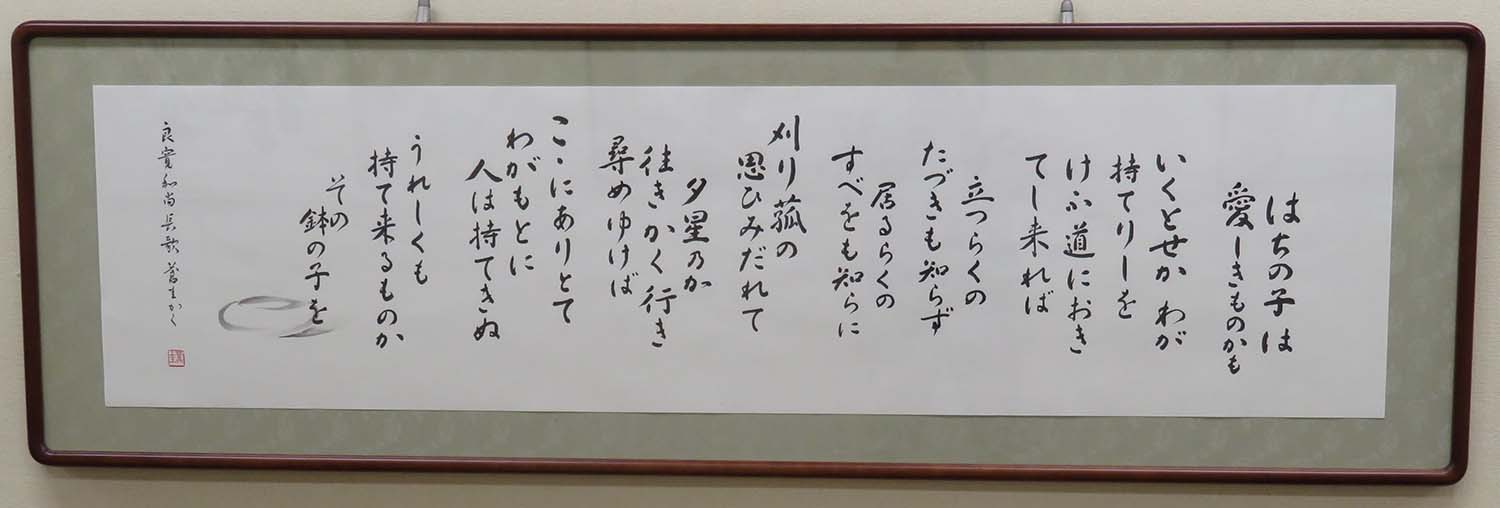 はちの子は
愛しきものかも
いくとせか わが
持てりしを
けふ道におき
てし来れば
立つらくの
たづきも知らず
居るらくの
すべをも知らに
刈り菰の
思ひみだれて
夕星乃か
往きかく行き
尋めゆけば
こゝにありとて
わがもとに
人は持てきぬ
うれしくも
持て来るものか
その
鉢の子を
良寛和尚長歌 かく